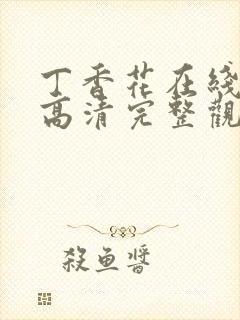 丁香花在綫
高清完整觀
殺魚醬